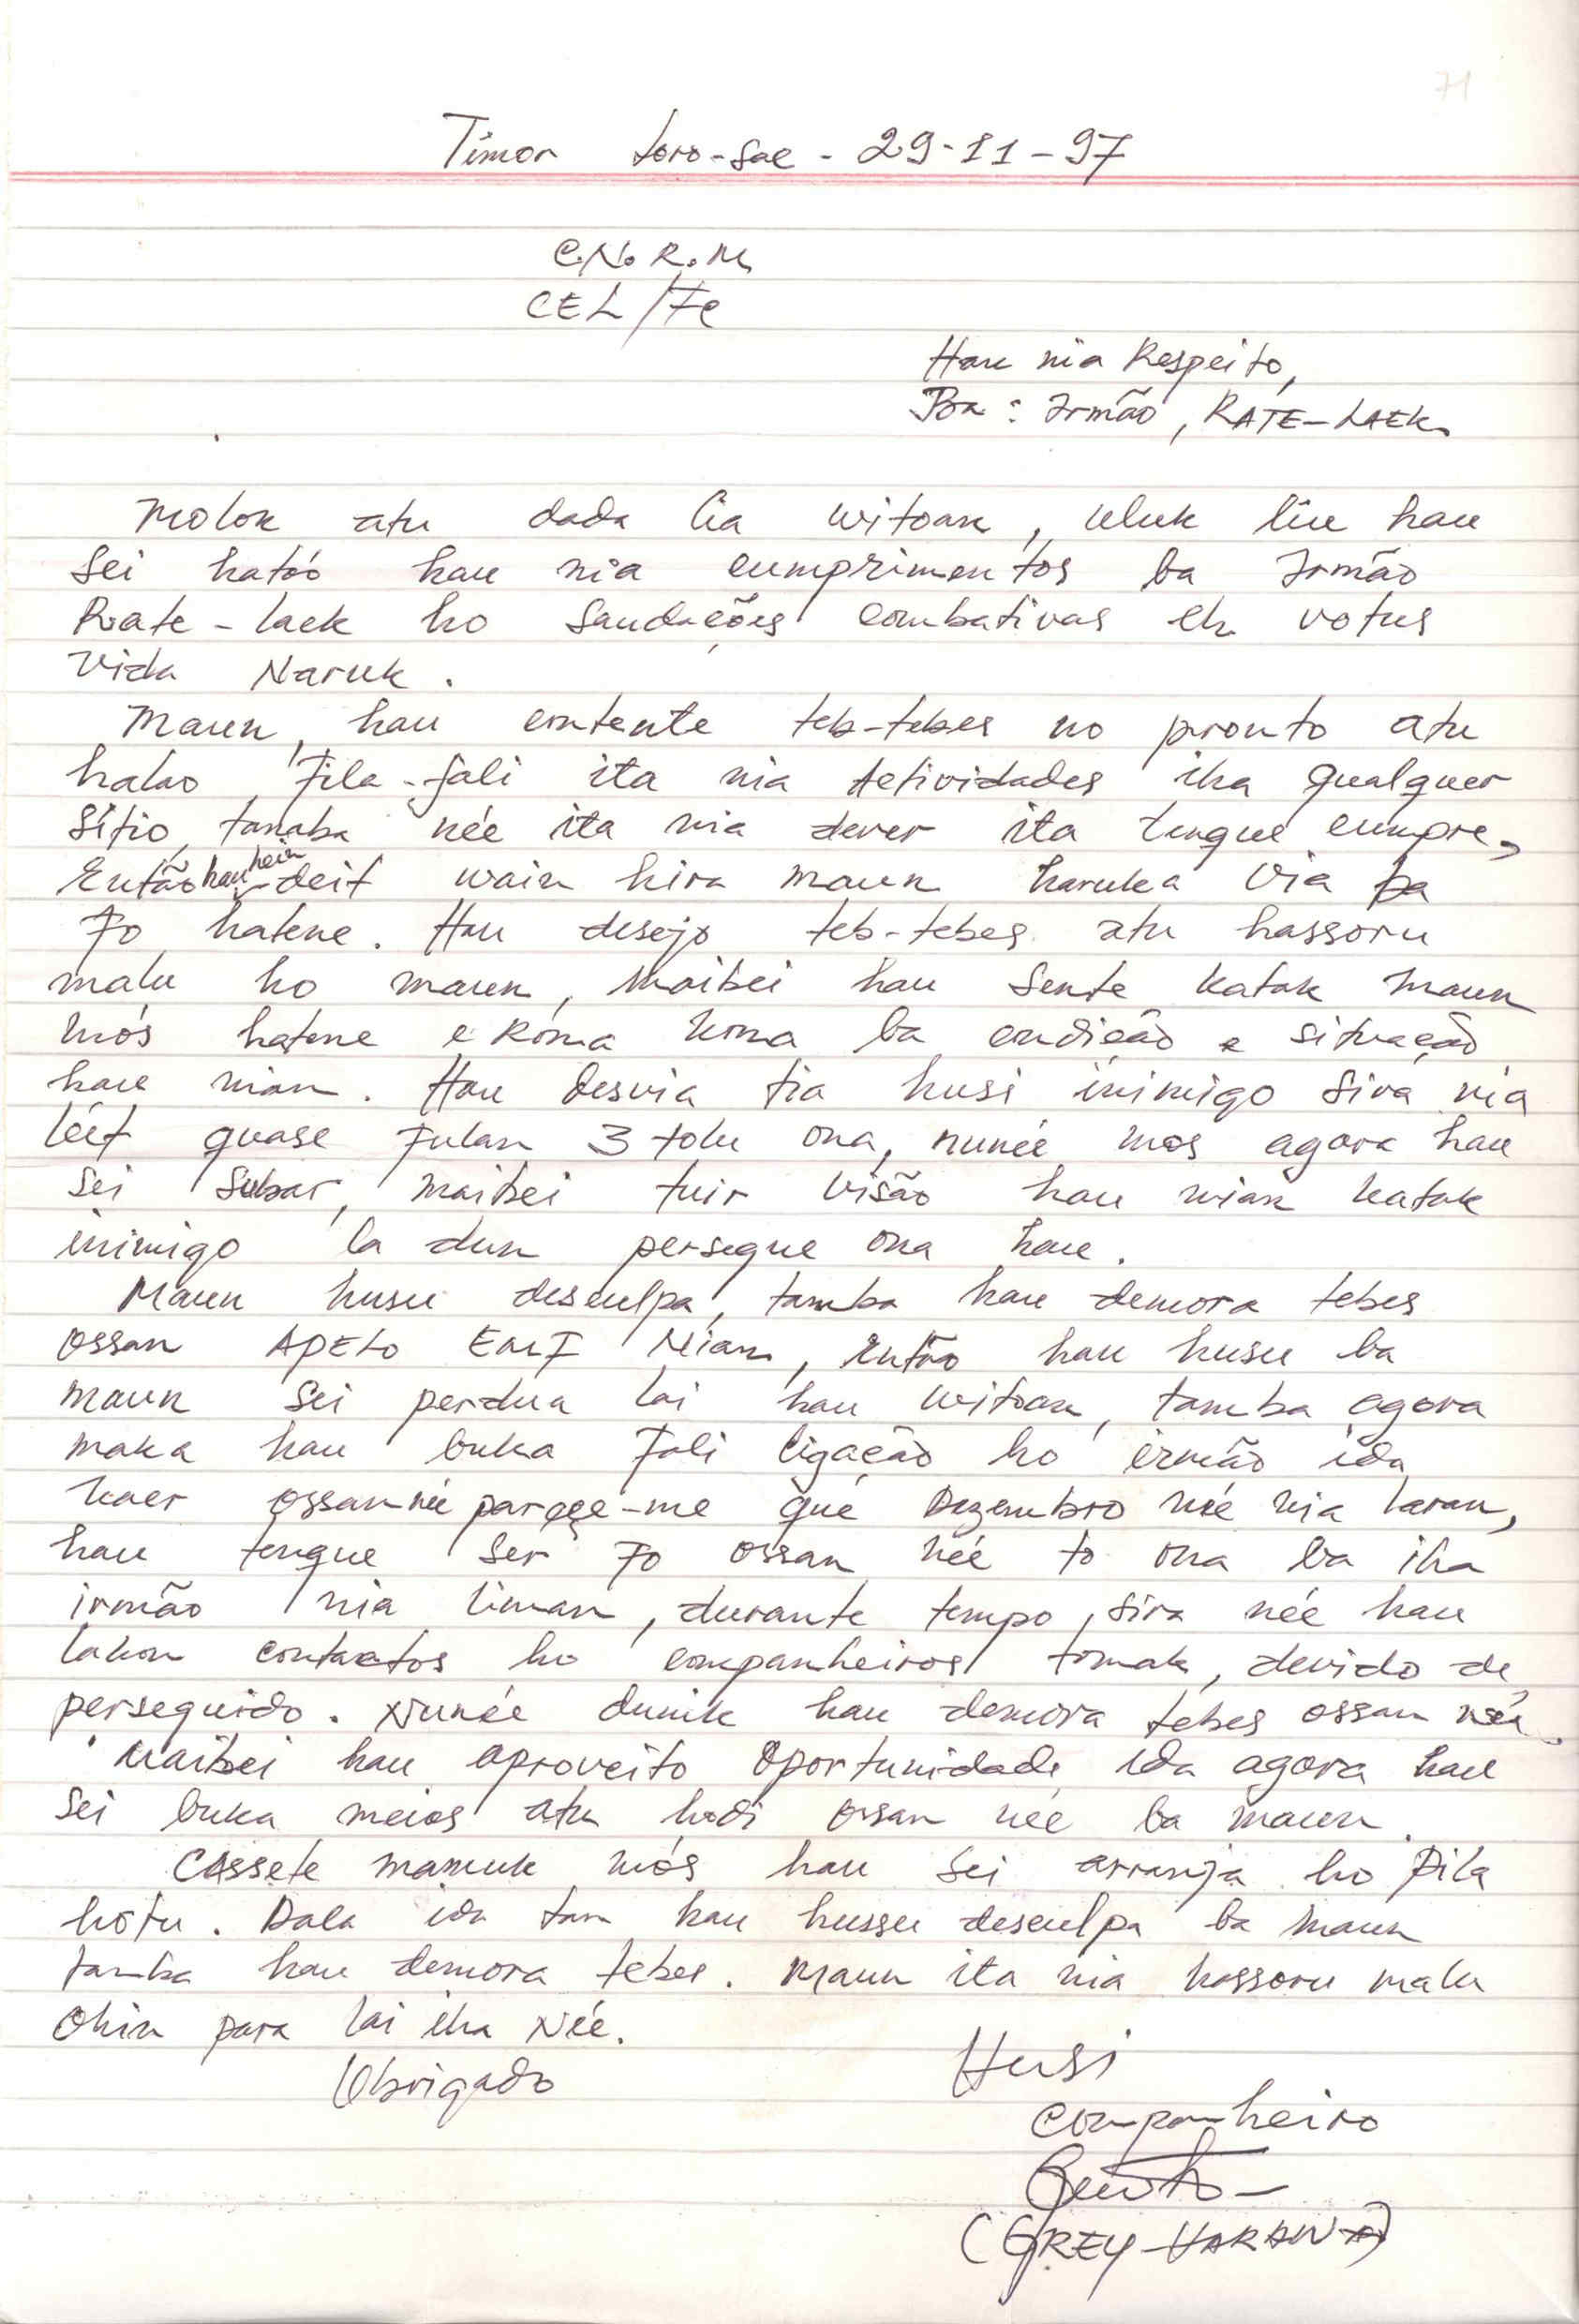 71
Timor Loro-Sae - 29-11-97
C.N.R.M.
CEL/FC
Hau nia Respeito,
Ba: Irmão, RATE-LAEK.
Molok atu dada lia uitoan, uluk liu hau
Sei hatóo hau nia cumprimentos ba Irmão
Rate-laek ho Saudações combativas ho votus
Vida Naruk.
Maun, hau contente teb-tebes no pronto atu
halao fila-fali ita nia actividades iha qualquer
Sítio, tanaba née ita nia dever ita tengue cumpre,
Então hau hein deit wain hira maun haruka Via ba
fo hatene. Hau desejo teb-tebes atu hassoru
malu ho maun, Maibei hau Sente katak maun
mós hatene e kona kona ba condição e situação
hau nian. Hau desvia tia husi inimigo Sira nia
léet quase fulan 3 tolu ona, nunée mos agora hau
Sei Subar, maibei tuir visão hau nian katak
inimigo la dun persegue ona hau.
Maun husu desculpa, tamba hau demora tebes
ossan APELO Nian, então hau husu ba
maun Sei perdua lai hau uitoan, tamba agora
maka hau buka fali ligação ho irmão ida
kaer ossan née parece-me que Dezembro née nia laran,
hau tengue Ser fo ossan née to ona ba iha
irmão nia liman, durante tempo sira née hau
lakon contactos ho companheiros tomak, devido de
perseguido. Nunée dunik hau demora tebes ossan née
Maibei hau aproveito oportunidade ida agora hau
Sei buka meios atu hodi ossan née ba maun.
Cassete mamuk mós hau Sei arranja ho Pila
hotu. Dala ida tan hau hussu desculpa ba maun
tamba hau demora tebes. Maun ita nia hassoru malu
Ohin para lai iha Née.
Obrigado
Husi
Companheiro
(GREY-HARANA)